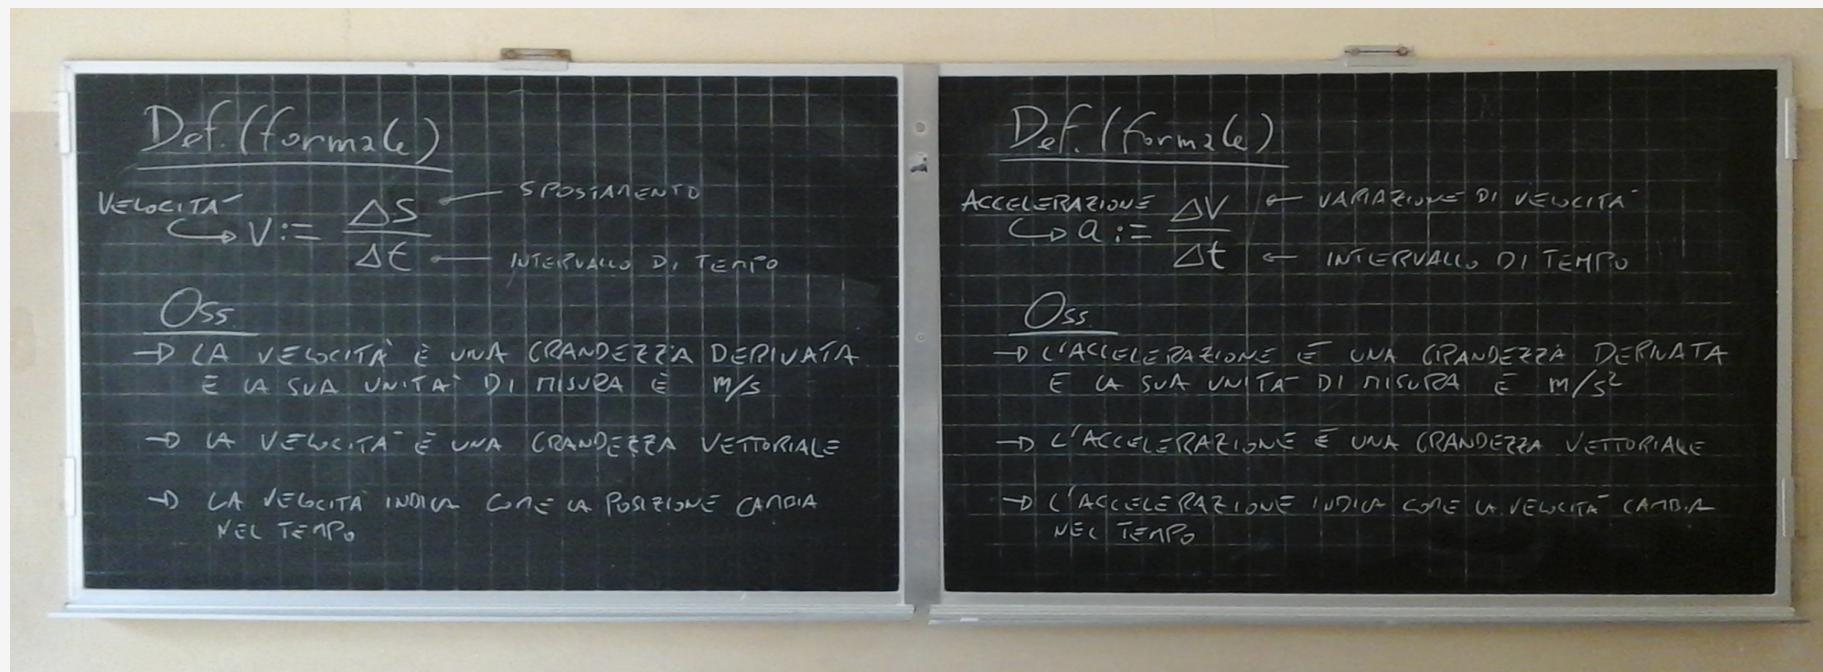 Def. (formale)
VELOCITÀ
V := ΔS/Δt
SPOSTAMENTO
INTERVALLO DI TEMPO
Oss.
→ LA VELOCITÀ È UNA GRANDEZZA DERIVATA
E LA SUA UNITÀ DI MISURA È m/s
→ LA VELOCITÀ È UNA GRANDEZZA VETTORIALE
→ LA VELOCITÀ INDICA COME LA POSIZIONE CAMBIA
NEL TEMPO
Def. (formale)
ACCELERAZIONE
a := ΔV/Δt
← VARIAZIONE DI VELOCITÀ
← INTERVALLO DI TEMPO
Oss.
→ L'ACCELERAZIONE È UNA GRANDEZZA DERIVATA
E LA SUA UNITÀ DI MISURA È m/s²
→ L'ACCELERAZIONE È UNA GRANDEZZA VETTORIALE
→ L'ACCELERAZIONE INDICA COME LA VELOCITÀ CAMBIA
NEL TEMPO